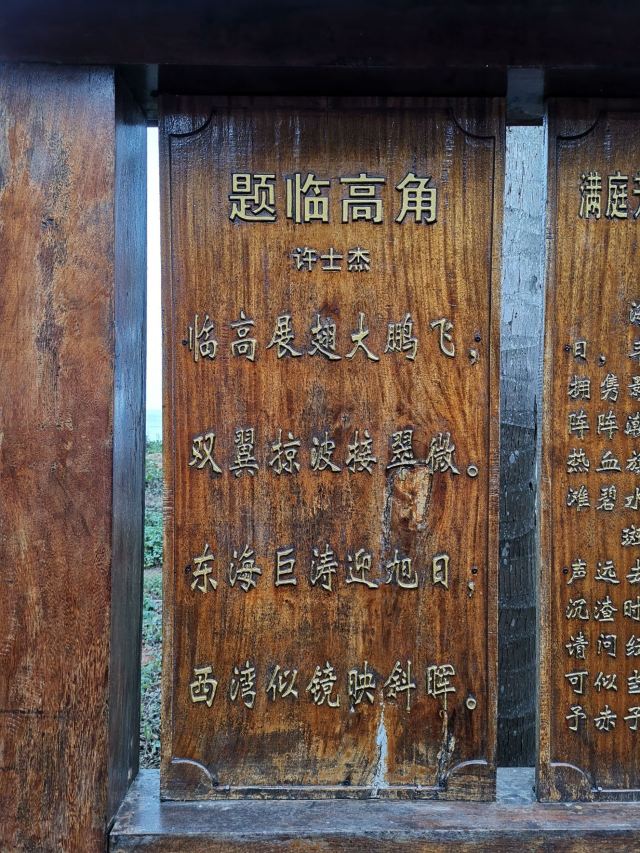 题临高角
许士杰
临高展翅大鹏飞，
双翼掠波接翠微。
东海巨涛迎旭日，
西湾似镜映斜晖。
满庭
日，
拥隽影
阵阵潮
热血
滩碧水
斑
声远
沉渣时
请问
可似当
予赤子